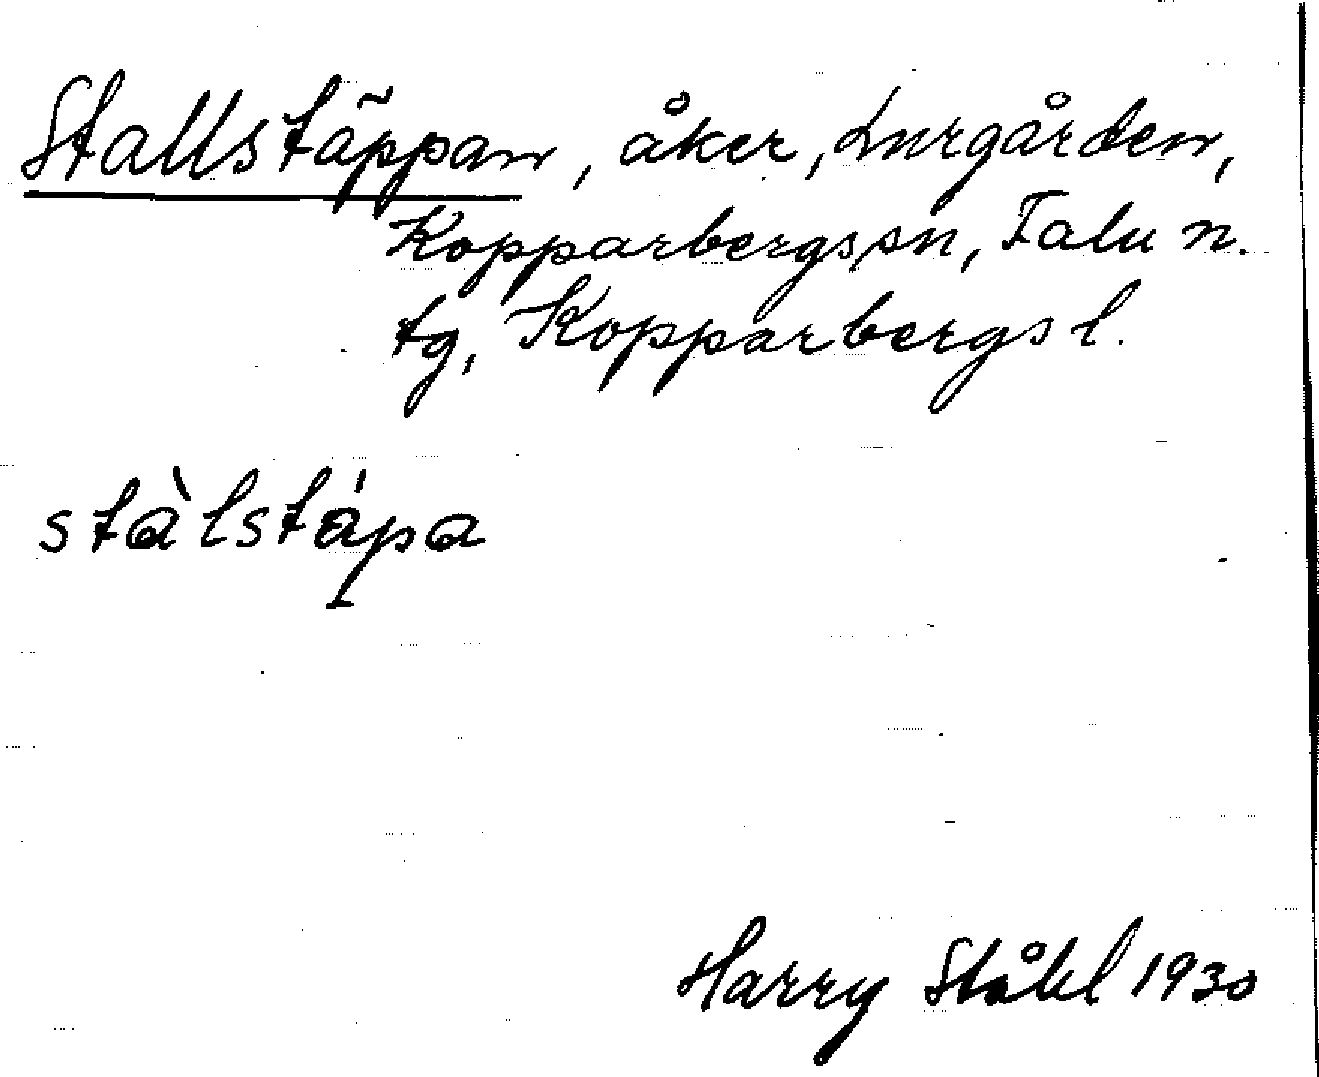 Stallstäppan, åker, Lurgården,
Kopparbergs sn, Falu n.
tg, Kopparbergs l.
stàlstápa
Harry Ståhl 1930